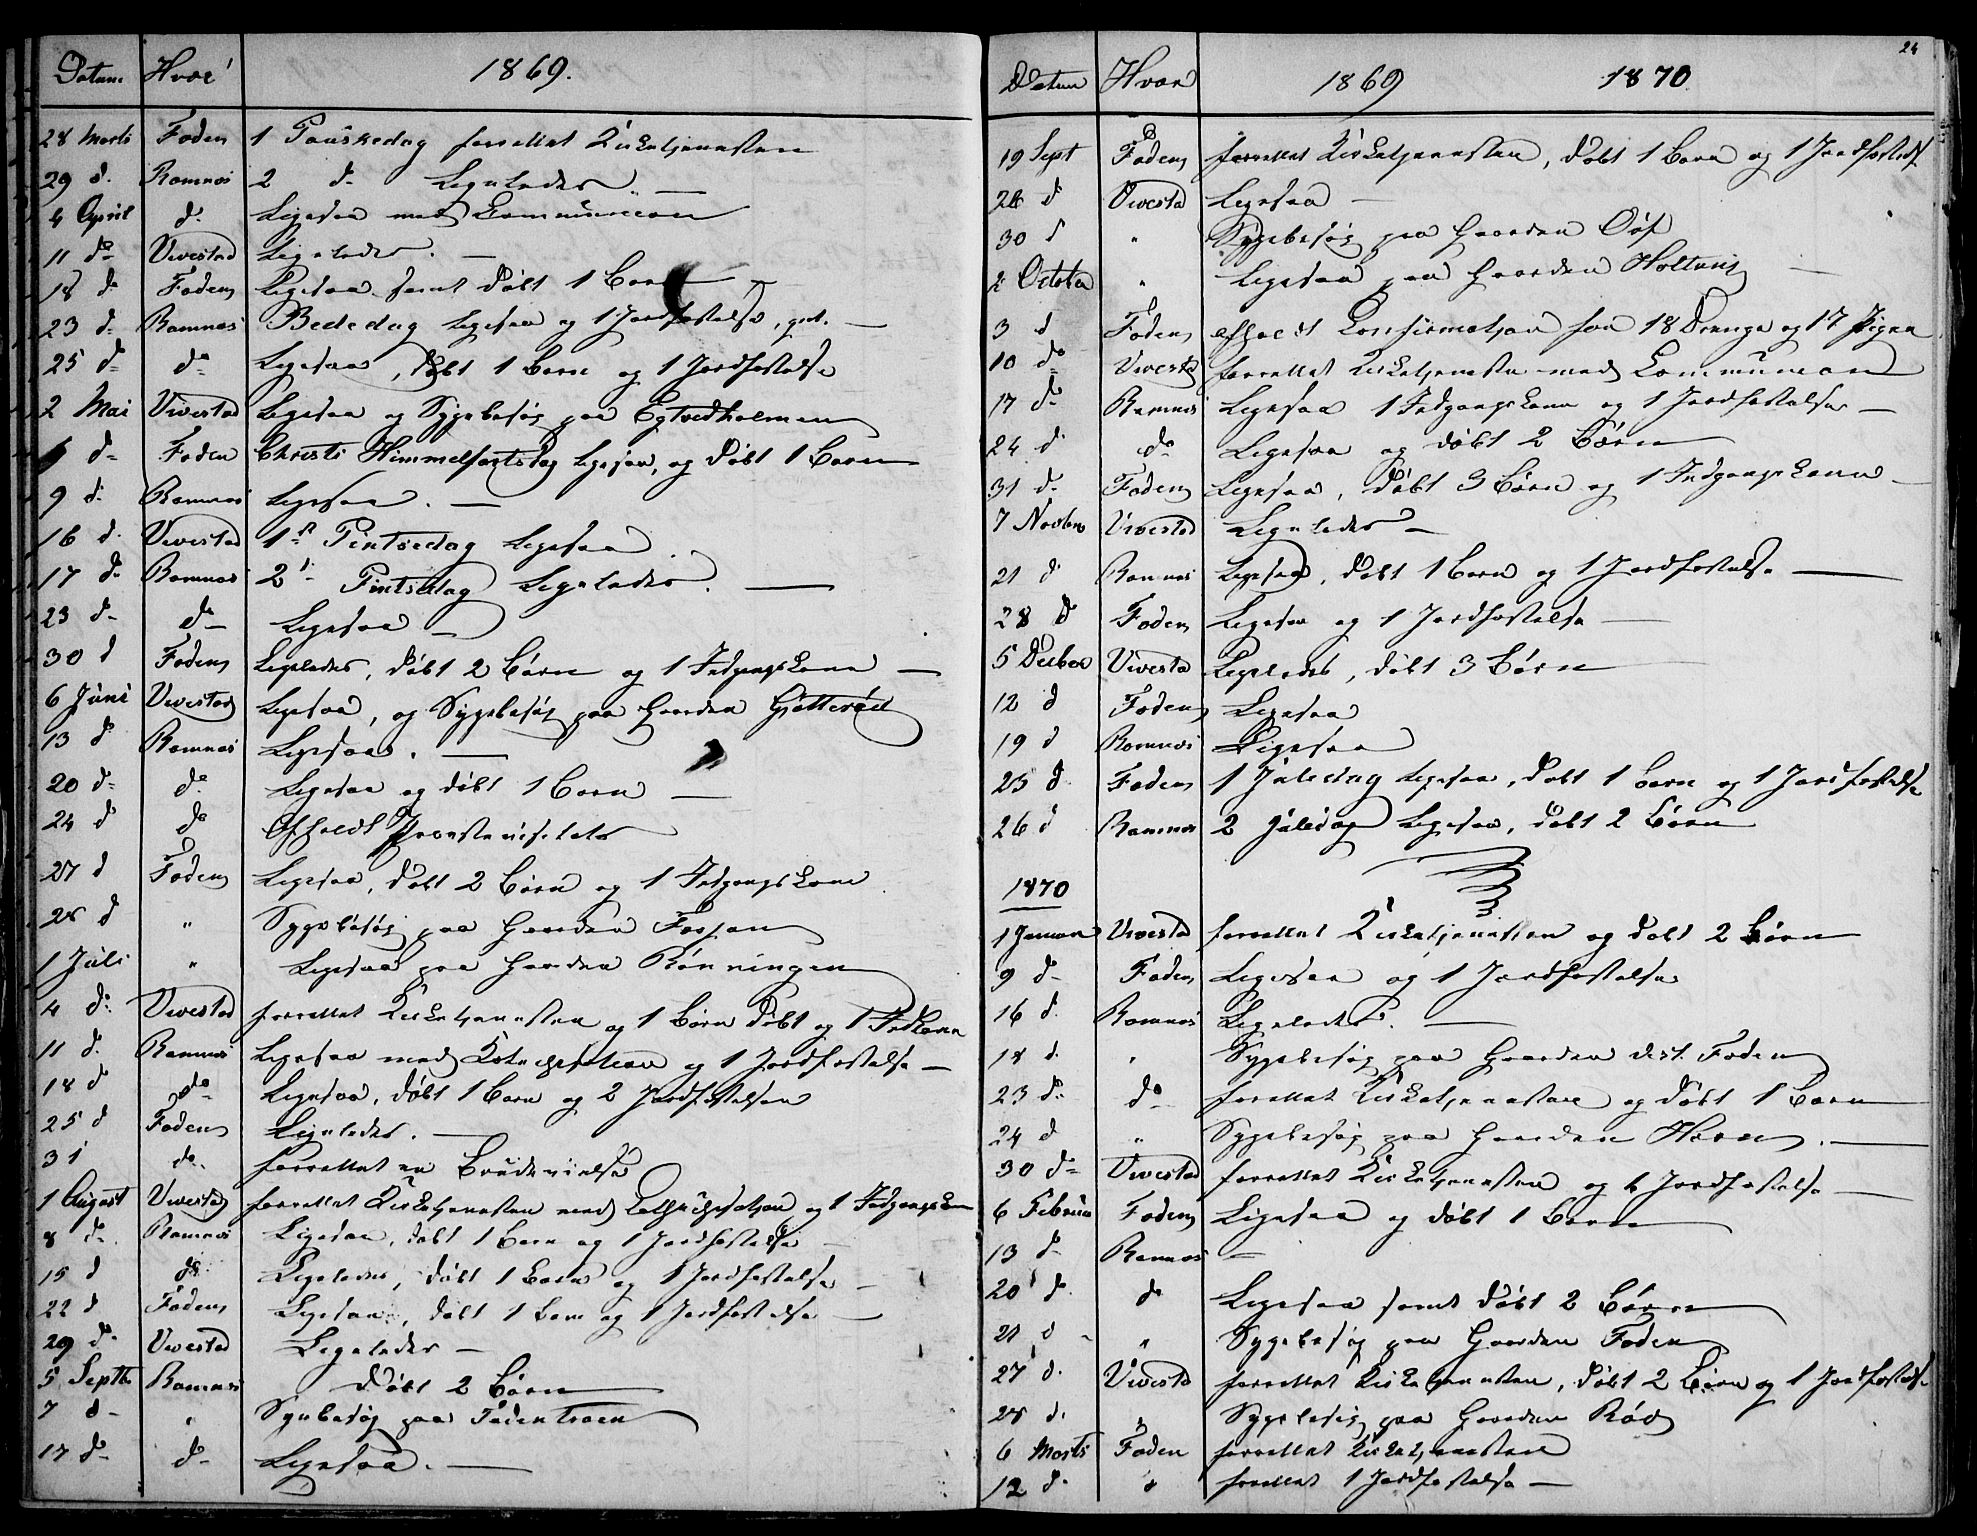 Datum Hvor 1869.
28 Marts Foden 1 Paaskedag forrettet Kirketjenesten
29 d. Ramnes 2 d- Ligeledes. —
4 April d- Ligesaa med Communion
11 do Vivestad Ligeledes. —
18 do Foden Ligesaa samt døbt 1 Barn
23 d- Ramnes Bededag ligesaa og 1 Jordfæstelse, —
25 d- do Ligesaa, døbt 1 Barn og 1 Jordfæstelse
2 Mai Vivestad Ligesaa og Sygebesøg paa Egtvedholmen
d- Foden Christi Himmelfartsdag ligesaa, og døbt 1 Barn
9 d- Ramnes Ligesaa. —
16 d. Vivestad 1ste Pintsedag ligesaa
17 d- Ramnes 2 Pintsedag Ligeledes. —
23 d- d- Ligesaa —
30 d Foden Ligeledes, døbt 2 Børn og 1 Indgangskone —
6 Juni Vivestad Ligesaa, og Sygebesøg paa Gaarden Gjötteröd
13 d Ramnes Ligesaa. —
20 d- d- Ligesaa og døbt 1 Barn —
24 d do Afholdt
27 d Foden Ligesaa, døbt 2 Børn og 1 Indgangskone
28 d " Sygebesøg paa Gaarden Fossan
1 Juli " Ligesaa paa Gaarden Rönningen
4 d- Vivestad forrettet Kirketjenesten og 1 Børn døbt og 1 Indkone
11 d. Ramnes Ligesaa med Katechisation og 1 Jordfæstelse —
18 d do Ligesaa, døbt 1 Barn og 2 Jordfæstelser
25 d Foden Ligeledes. —
31 do. forrettet en Brudevielse
1 August Vivestad forrettet Kirketjenesten med Cathechisatjon og 1 Indgangskone
8 d- Ramnes Ligesaa, døbt 1 Barn og 1 Jordfæstelse —
15 d do. Ligeledes, døbt 1 Barn og 1 Jordfæstelse —
22 d Foden Ligesaa, døbt 1 Barn og 1 Jordfæstelse —
29 d- Vivestad Ligeledes —
5 Septb Ramnes Døbt 2 Børn
7 d- " Sygebesøg paa Fodentraen
17 d- d- Ligesaa. —
24
Datum Hvor 1869 1870
19 Sept Foden forrettet Kirketjenesten, døbt 1 Barn og 1 Jordfæstels.
26 d Vivestad Ligesaa —
30 d " Sygebesøg paa Gaarden Oöf
2 Octobr " Ligesaa paa Gaarden Holtung —
3 d Foden afholdt Confirmatjon for 18 Drenge og 17 Piger
10 do Vivestad forrettet Kirketjenesten med Communion
17 d- Ramnes Ligesaa 1 Indgangskone og 1 Jordfæstelse —
24 d do Ligesaa og døbt 2 Børn
31 d- Foden Ligesaa, døbt 3 Børn og 1 Indgangskone —
7 Novbr Vivestad Ligeledes —
21 d Ramnes Ligesaa, døbt 1 Barn og 1 Jordfæstelse —
28 d Foden Ligesaa og 1 Jordfæstelse —
5 Decber Vivestad Ligeledes, døbt 3 Børn
12 d Foden Ligesaa
19 d Ramnes Ligesaa
25 d Foden 1 Juledag ligesaa, døbt 1 Barn og 1 Jordfæstelse
26 d Ramnes 2 Juledag ligesaa, døbt 2 Børn
1870
1 Januar Vivestad forrettet Kirketjenesten og døbt 2 Børn
9 d- Foden Ligesaa og 1 Jordfæstelse
16 d. Ramnes Ligeledes. —
18 d. " Sygebesøg paa Gaarden dist. Foden
23 d- do forrettet Kirketjenesten og døbt 1 Barn
24 d " Sygebesøg paa Gaarden Horn. —
30 d- Vivestad forrettet Kirketjenesten og 4 Jordfæstelse —
6 Februar Foden Ligesaa og døbt 1 Barn
13 d- Ramnes —
20 d. do Ligesaa samt døbt 2 Børn
21 d - " Sygebesøg paa Gaarden Foden
27 d. Vivestad forrettet Kirketjenesten, døbt 2 Børn og 1 Jordfæstels
28 d. " Sygebesøg paa Gaarden Röd
6 Marts Foden forrettet Kirketjenesten
12 d- " forrettet 1 Jordfæstelse —